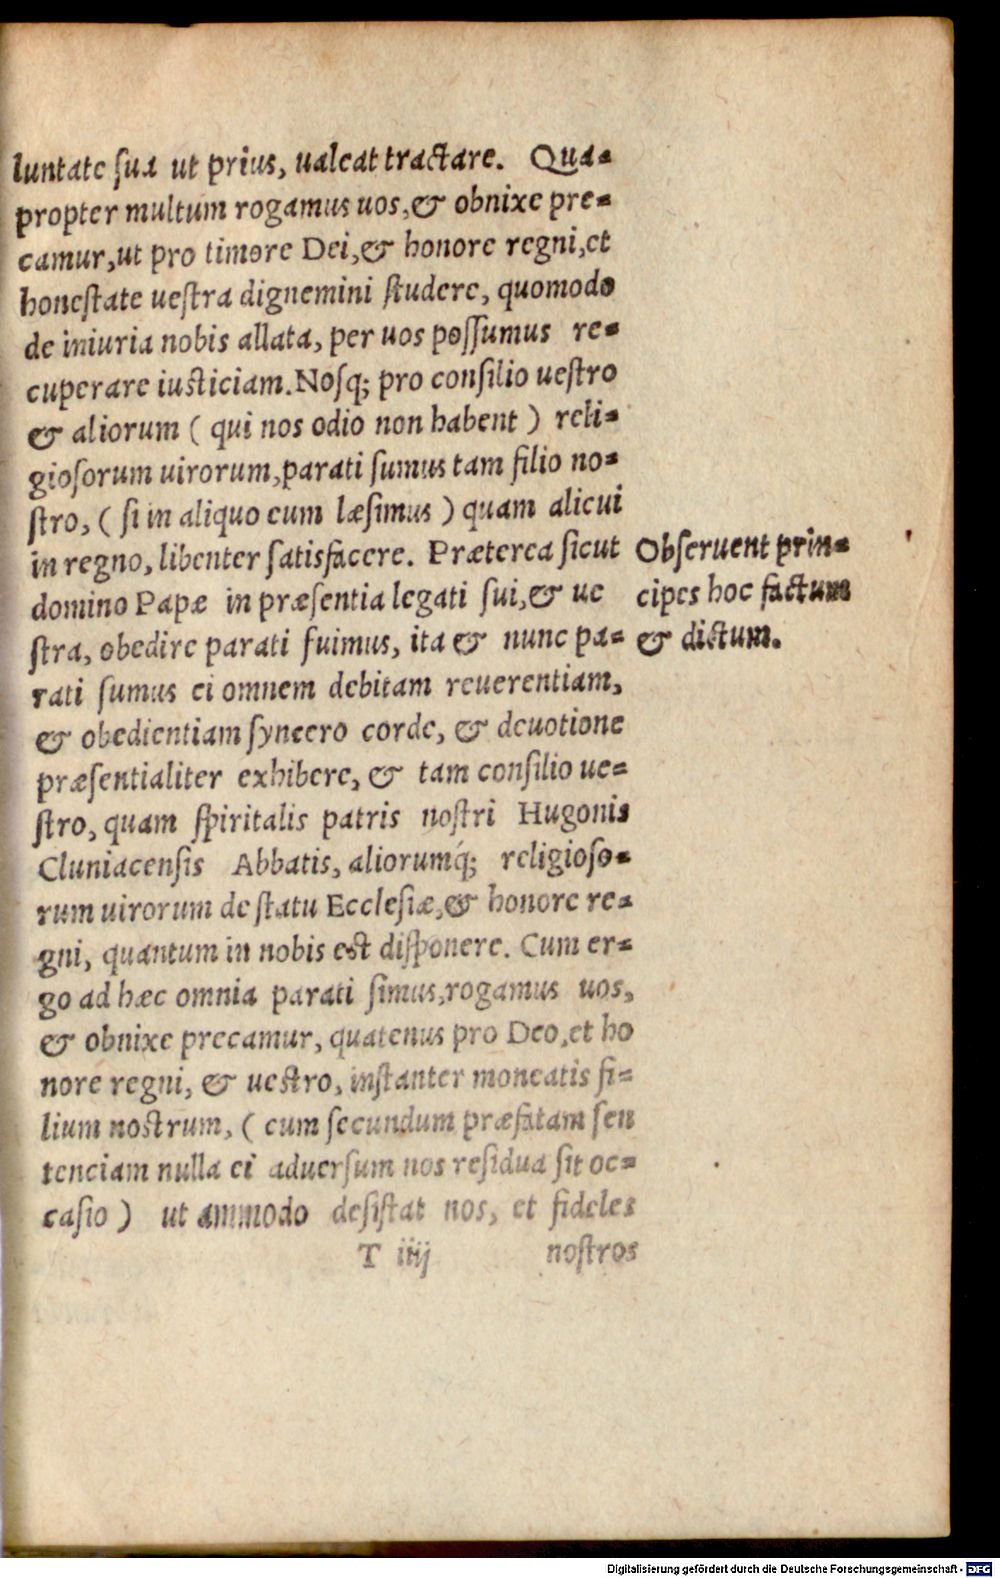 luntate sua ut prius, ualeat tractare. Qua-
propter multum rogamus uos, & obnixe pre-
camur, ut pro timore Dei, & honore regni, et
honestate uestra dignemini studere, quomodo
de iniuria nobis allata, per uos possumus re-
cuperare iusticiam. Nosq; pro consilio uestro
& aliorum ( qui nos odio non habent ) reli-
giosorum uirorum, parati sumus tam filio no-
stro, ( si in aliquo eum læsimus ) quam alicui
in regno, libenter satisfacere. Præterea sicut
domino Papæ in præsentia legati sui, & ue
stra, obedire parati fuimus, ita & nunc pa-
rati sumus ei omnem debitam reuerentiam,
& obedientiam syncero corde, & deuotione
præsentialiter exhibere, & tam consilio ue-
stro, quam spiritalis patris nostri Hugonis
Cluniacensis Abbatis, aliorumq́; religioso-
rum uirorum de statu Ecclesiæ, & honore re-
gni, quantum in nobis est disponere. Cum er-
go ad hæc omnia parati simus, rogamus uos,
& obnixe precamur, quatenus pro Deo, et ho
nore regni, & uestro, instanter moneatis fi-
lium nostrum, ( cum secundum præfatam sen
tenciam nulla ei aduersum nos residua sit oc-
casio ) ut ammodo desistat nos, et fideles
T iiij nostros
Obseruent prin-
cipes hoc factum
& dictum.
Digitalisierung gefördert durch die Deutsche Forschungsgemeinschaft - DFG